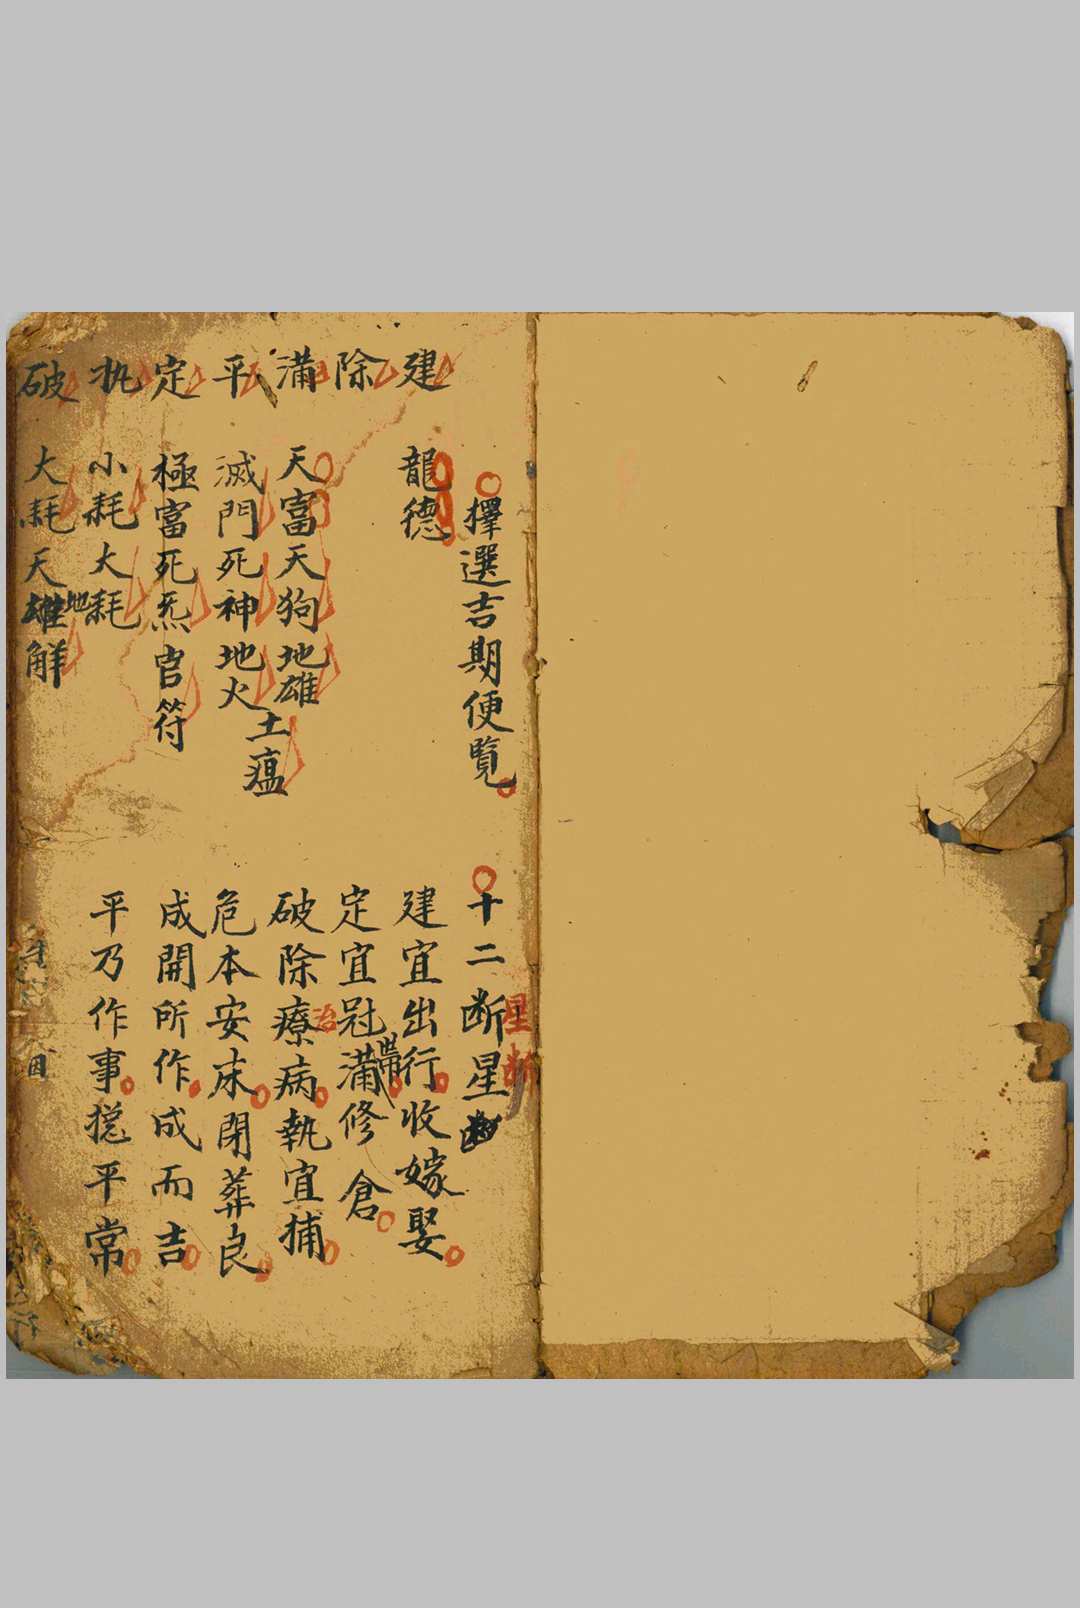 擇選吉期便覽
建 龍德
除
滿 天富天狗地雄土瘟
平 滅門死神地火
定 極富死炁官符
执 小耗大耗
破 大耗天雄地解
十二断星
星断
建宜出行收嫁娶
定宜冠帶滿修倉
破除療治病執宜捕
危本安床閉葬良
成開所作成而吉
平乃作事揔平常